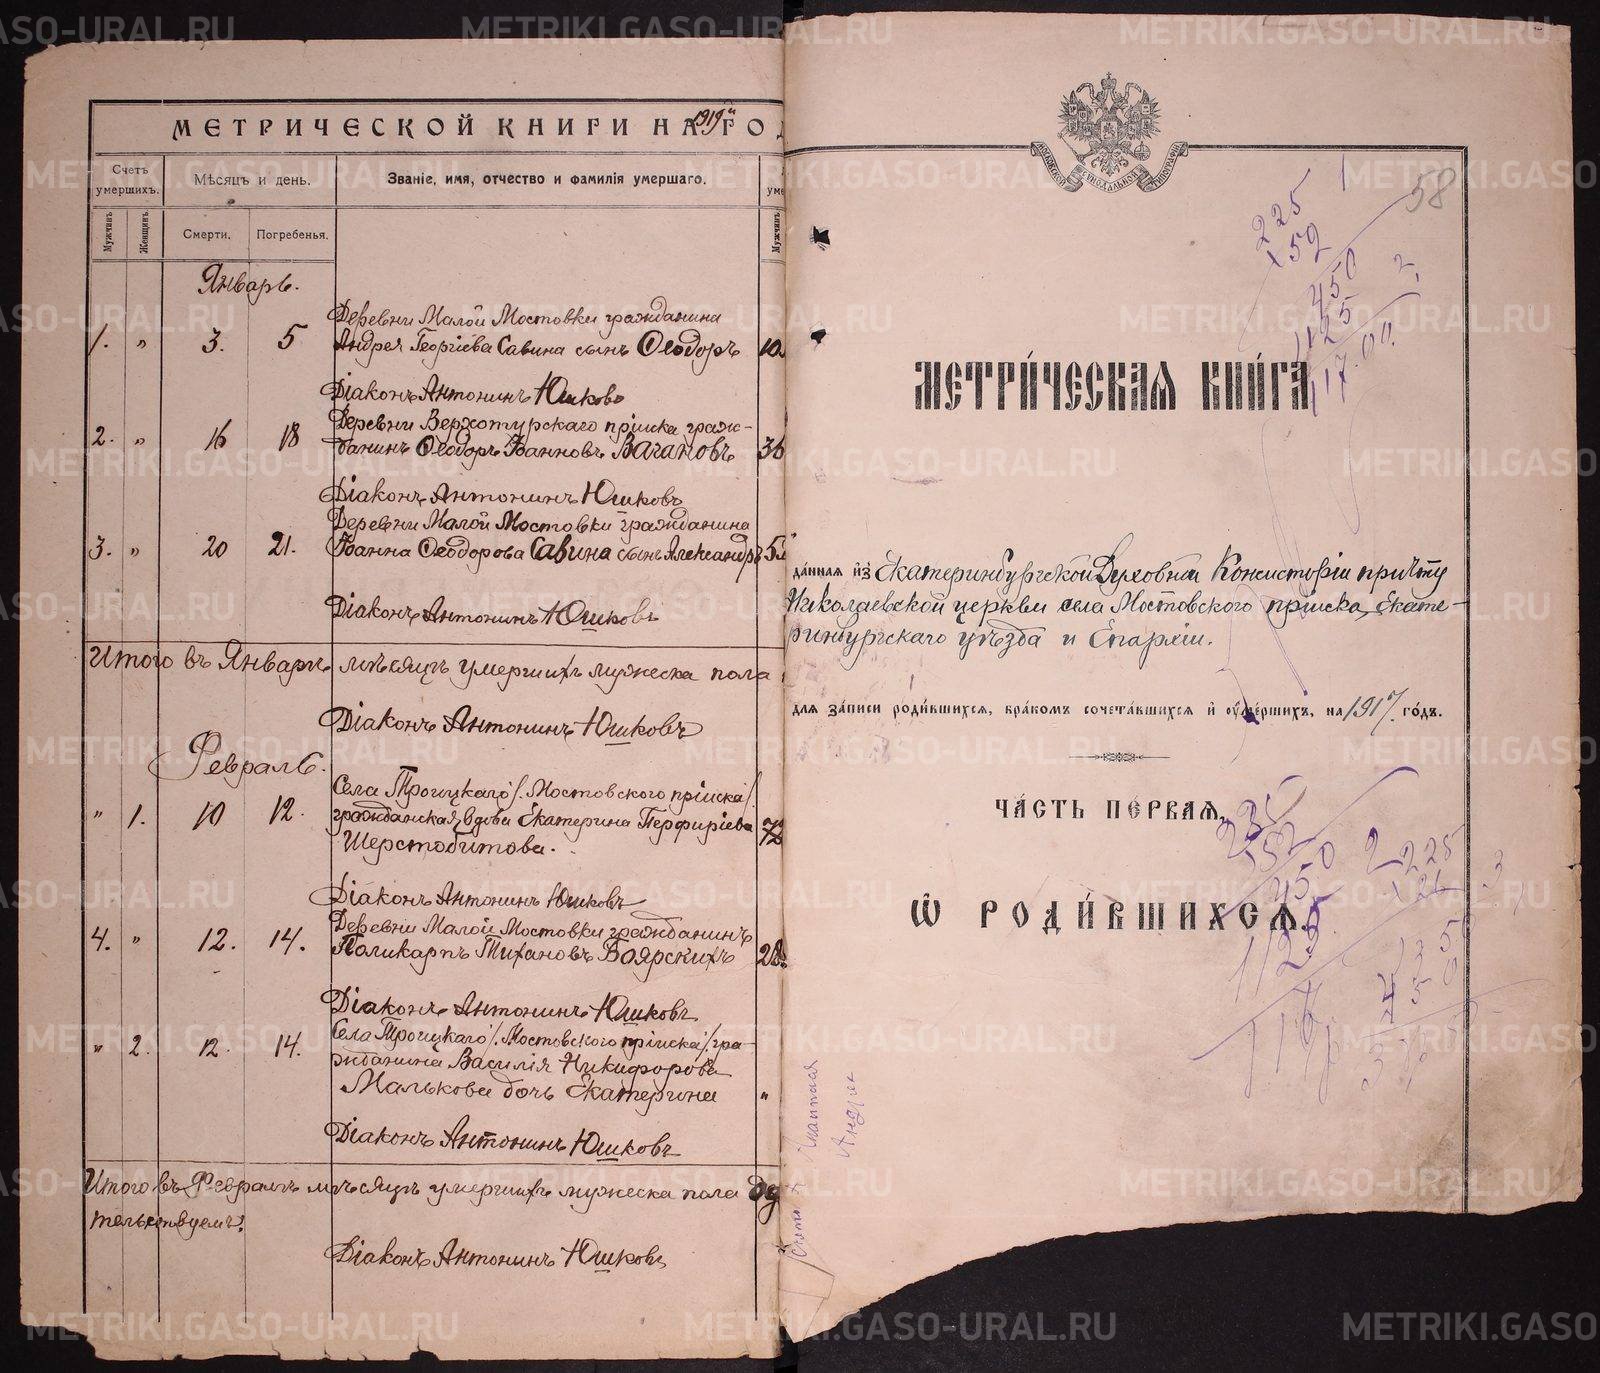 МЕТРИЧЕСКОЙ КНИГИ НА 1919й ГОД
Счетъ умершихъ.
Мѣсяцъ и день.
Званіе, имя, отчество и фамилія умершаго.
Мужчинъ
Женщинъ.
Смерти.
Погребенья.
Мужчинъ
Январь.
Деревни Малой Мостовки гражданина
1. " 3. 5 Андрея Георгіева Савина сынъ Ѳеодоръ
Діаконъ Антонинъ Юшковъ
Деревни Верхотурскаго пріиска граж-
2. " 16 18 данинъ Ѳеодоръ Іоанновъ Вагановъ 36
Діаконъ Антонинъ Юшковъ
Деревни Малой Мостовки гражданина
3. " 20 21. Іоанна Ѳеодорова Савина сынъ Александръ
Діаконъ Антонинъ Юшковъ
Итого въ Январѣ мѣсяцѣ умершихъ мужеска пола
Діаконъ Антонинъ Юшковъ
Февраль.
Села Троицкаго /Мостовского пріиска/
" 1. 10 12. гражданская вдова Екатерина Перфиріева 72
Шерстобитова.
Діаконъ Антонинъ Юшковъ
Деревни Малой Мостовки гражданинъ
4. " 12. 14. Поликарпъ Тихановъ Боярскихъ 28
Діаконъ Антонинъ Юшковъ
Села Троицкаго /Мостовского пріиска/ гра-
" 2. 12. 14. жданина Василія Никифорова
Малькова дочь Екатерина "
Діаконъ Антонинъ Юшковъ
Итого въ Февралѣ мѣсяцѣ умершихъ мужеска пола
тельствуемъ:
Діаконъ Антонинъ Юшковъ
МОСКОВСКОЙ СѴНОДАЛЬНОЙ ТИПОГРАФІИ
58
225
152
450
1125
117.00.
МЕТРИ́ЧЕСКАѦ КНИ́ГА
да́ннаѧ и҆з̾ Екатеринбургской Духовной Консисторіи причту
Николаевской церкви села Мостовского пріиска, Екате-
ринбургскаго уѣзда и Епархіи.
длѧ за́писи роди́вшихсѧ, бра́комъ сочета́вшихсѧ и҆ ᲂу҆ме́ршихъ, на 1917. го́дъ.
ЧА́СТЬ ПЕ́РВАѦ,
Ѽ РОДИ́ВШИХСѦ.
METRIKI.GASO-URAL.RU